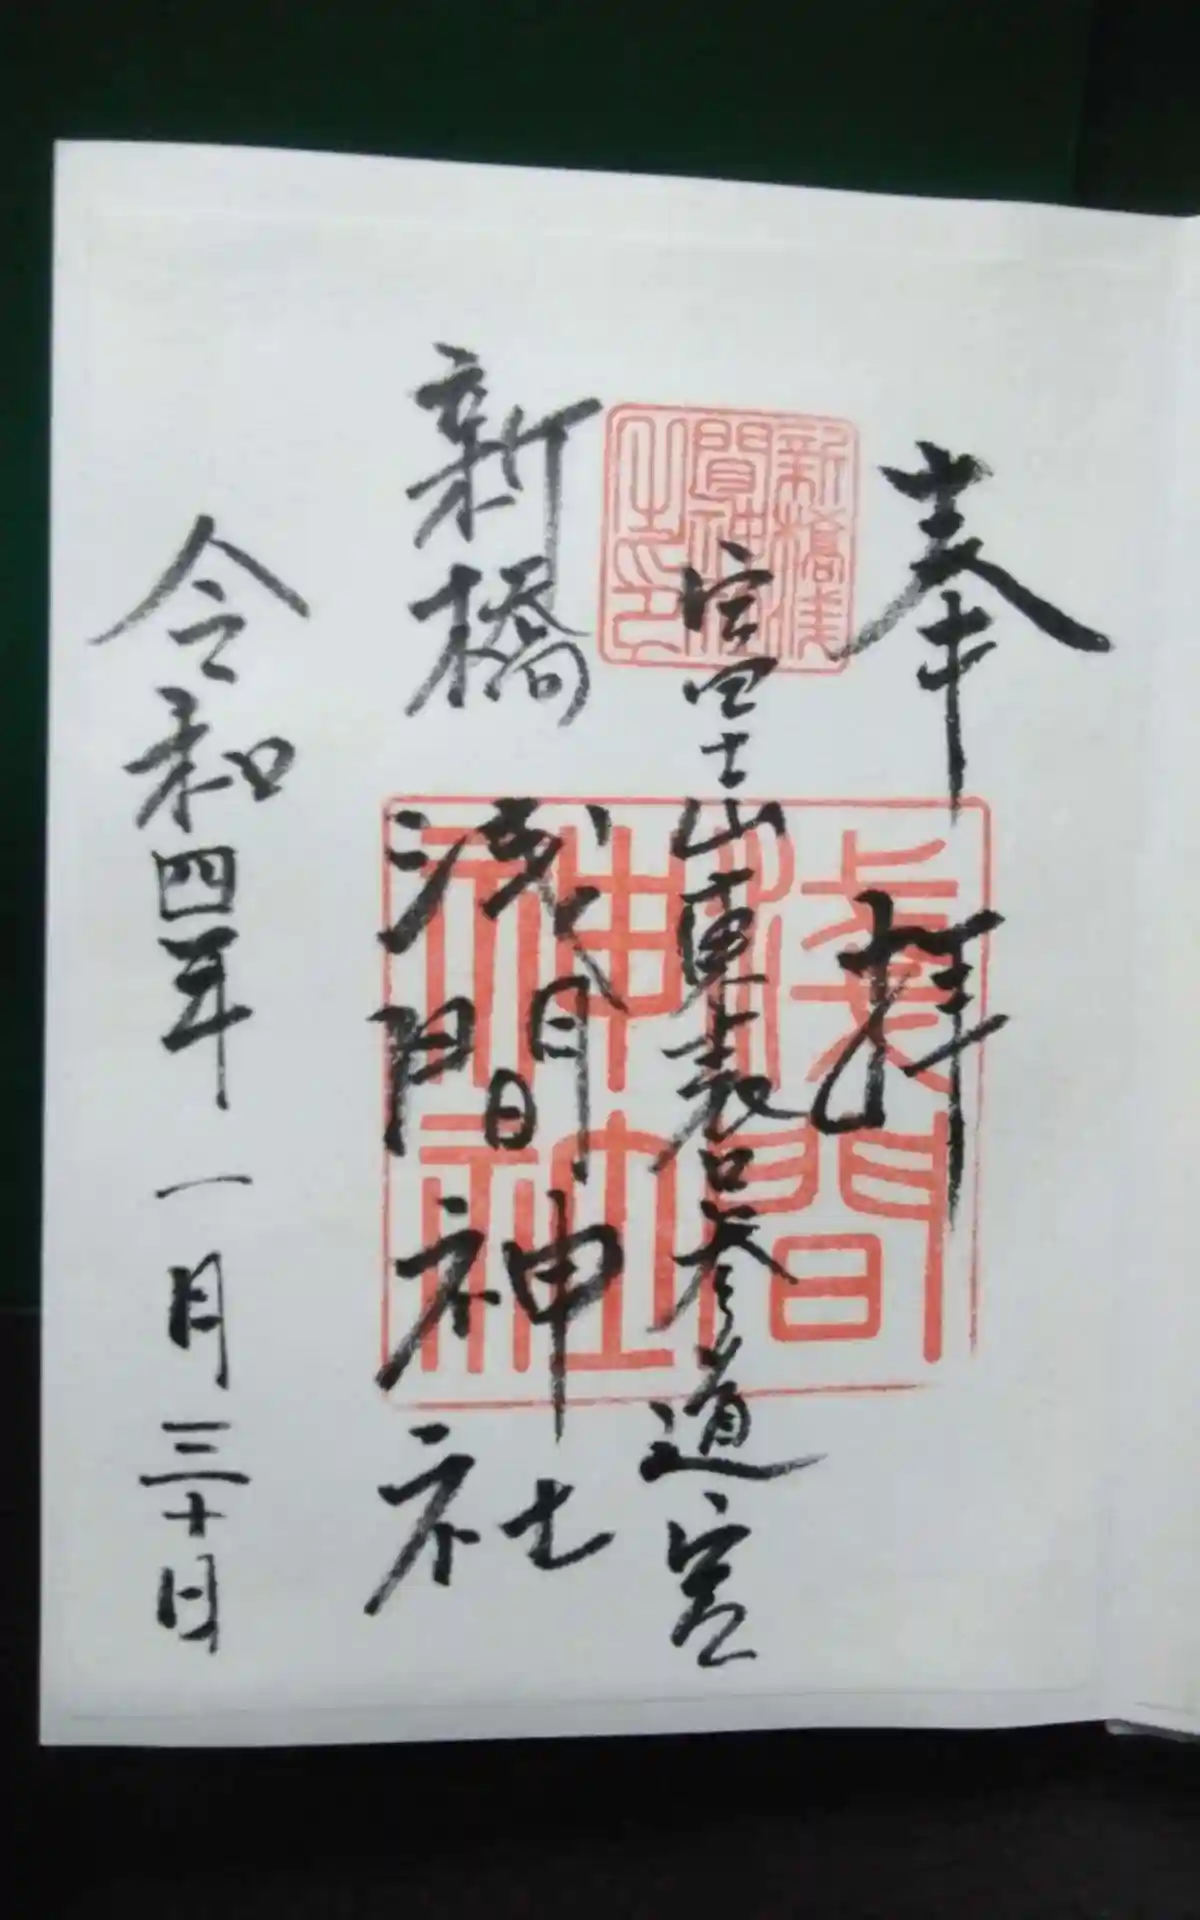 奉拝
富士山東表口参道宮
新橋浅間神社
令和四年一月三十日
新橋浅間神社之印
浅間神社